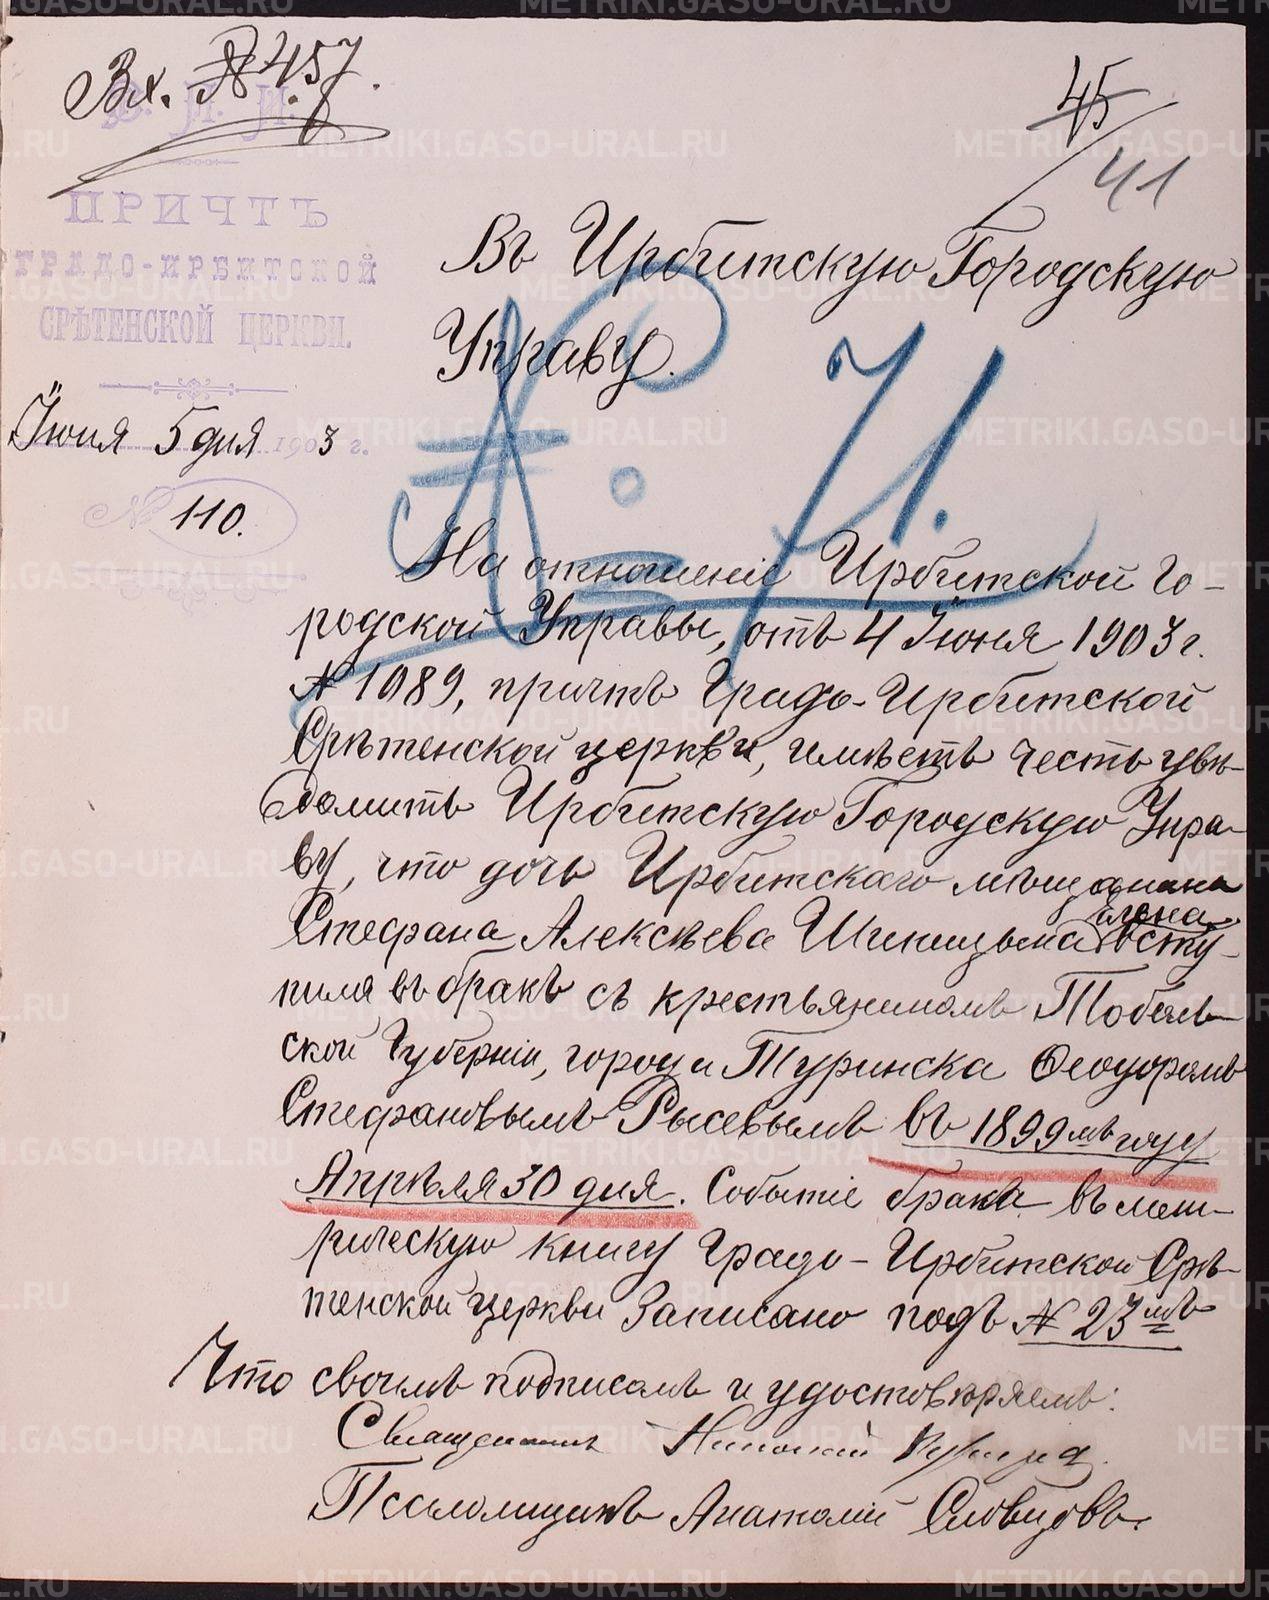 Вх. № 457.
45
41
В. П. И.
ПРИЧТЪ
ГРАДО-ИРБИТСКОЙ
СРѢТЕНСКОЙ ЦЕРКВИ.
Іюня 5 дня 1903 г.
№ 110.
Въ Ирбитскую Городскую
Управу.
№ 71.
На отношеніе Ирбитской Го-
родской Управы, отъ 4 Іюня 1903 г.
№ 1089, причтъ Градо-Ирбитской
Срѣтенской церкви, имѣетъ честь увѣ-
домить Ирбитскую Городскую Упра-
ву, что дочь Ирбитскаго мѣщанина
Елена
Стефана Алексѣева Шипицына всту-
пила въ бракъ съ крестьяниномъ Тоболь-
ской Губерніи, города Туринска Ѳеодоромъ
Стефановымъ Рысевымъ въ 1899мъ году
Апрѣля 30 дня. Событіе брака въ мет-
рическую книгу Градо-Ирбитской Срѣ-
тенской церкви записано подъ № 23мъ
Что своимъ подписомъ и удостовѣряемъ:
Священникъ Николай
Псаломщикъ Анатолій Словцовъ.
METRIKI.GASO-URAL.RU